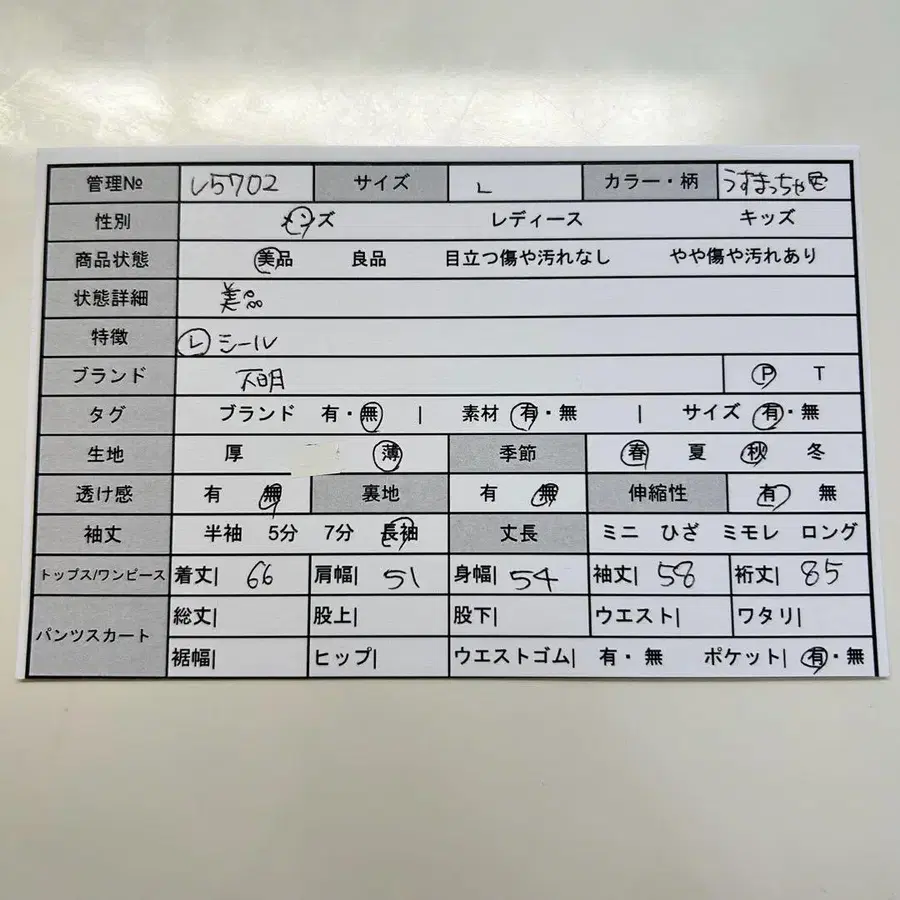 管理№ L5702 サイズ L カラー・柄 うすまっちゃ色
性別 メンズ レディース キッズ
商品状態 美品 良品 目立つ傷や汚れなし やや傷や汚れあり
状態詳細 美品
特徴 L シール
ブランド 不明 P T
タグ ブランド 有・無 | 素材 有・無 | サイズ 有・無
生地 厚 薄 季節 春 夏 秋 冬
透け感 有 無 裏地 有 無 伸縮性 有 無
袖丈 半袖 5分 7分 長袖 丈長 ミニ ひざ ミモレ ロング
トップス/ワンピース 着丈| 66 肩幅| 51 身幅| 54 袖丈| 58 裄丈| 85
パンツスカート 総丈| 股上| 股下| ウエスト| ワタリ|
裾幅| ヒップ| ウエストゴム| 有・無 ポケット| 有・無